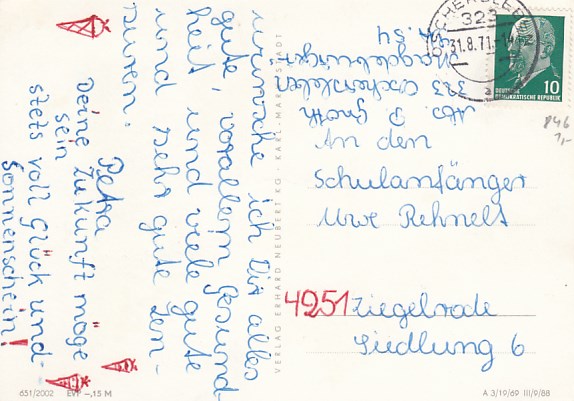 wünsche ich Dir alles
gute, vorallem Gesund-
heit und viele gute
und sehr gute Zen-
suren.
Petra
Deine Zukunft möge
sein
stets voll Glück und
Sonnenschein!
VERLAG ERHARD NEUBERT KG · KARL-MARX-STADT
Abs. P. Gnoth
323 Oschersleben
Magdeburger-
str. 54
OSCHERSLEBEN
323
31.8.71
a
10
DEUTSCHE
DEMOKRATISCHE REPUBLIK
846
1,-
An den
Schulanfänger
Uwe Rehnelt
4251 Ziegelrode
Siedlung 6
651/2002 EVP –,15 M
A 3/19/69 III/9/88